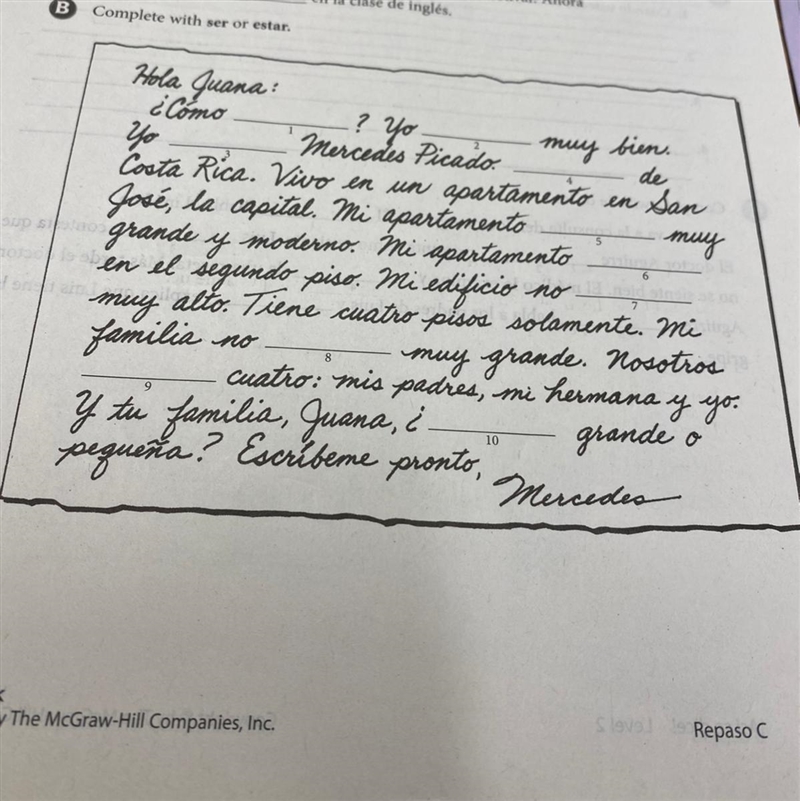 en la clase de inglés.
Ahora
B Complete with ser or estar.
Hola Juana:
¿Cómo ____________ ? Yo ____________ muy bien.
1 2
Yo ____________ Mercedes Picado. ____________ de
3 4
Costa Rica. Vivo en un apartamento en San
José, la capital. Mi apartamento ____________ muy
5
grande y moderno. Mi apartamento ____________
6
en el segundo piso. Mi edificio no ____________
7
muy alto. Tiene cuatro pisos solamente. Mi
familia no ____________ muy grande. Nosotros
8
____________ cuatro: mis padres, mi hermana y yo.
9
Y tu familia, Juana, ¿ ____________ grande o
10
pequeña? Escríbeme pronto,
Mercedes
The McGraw-Hill Companies, Inc.
Repaso C